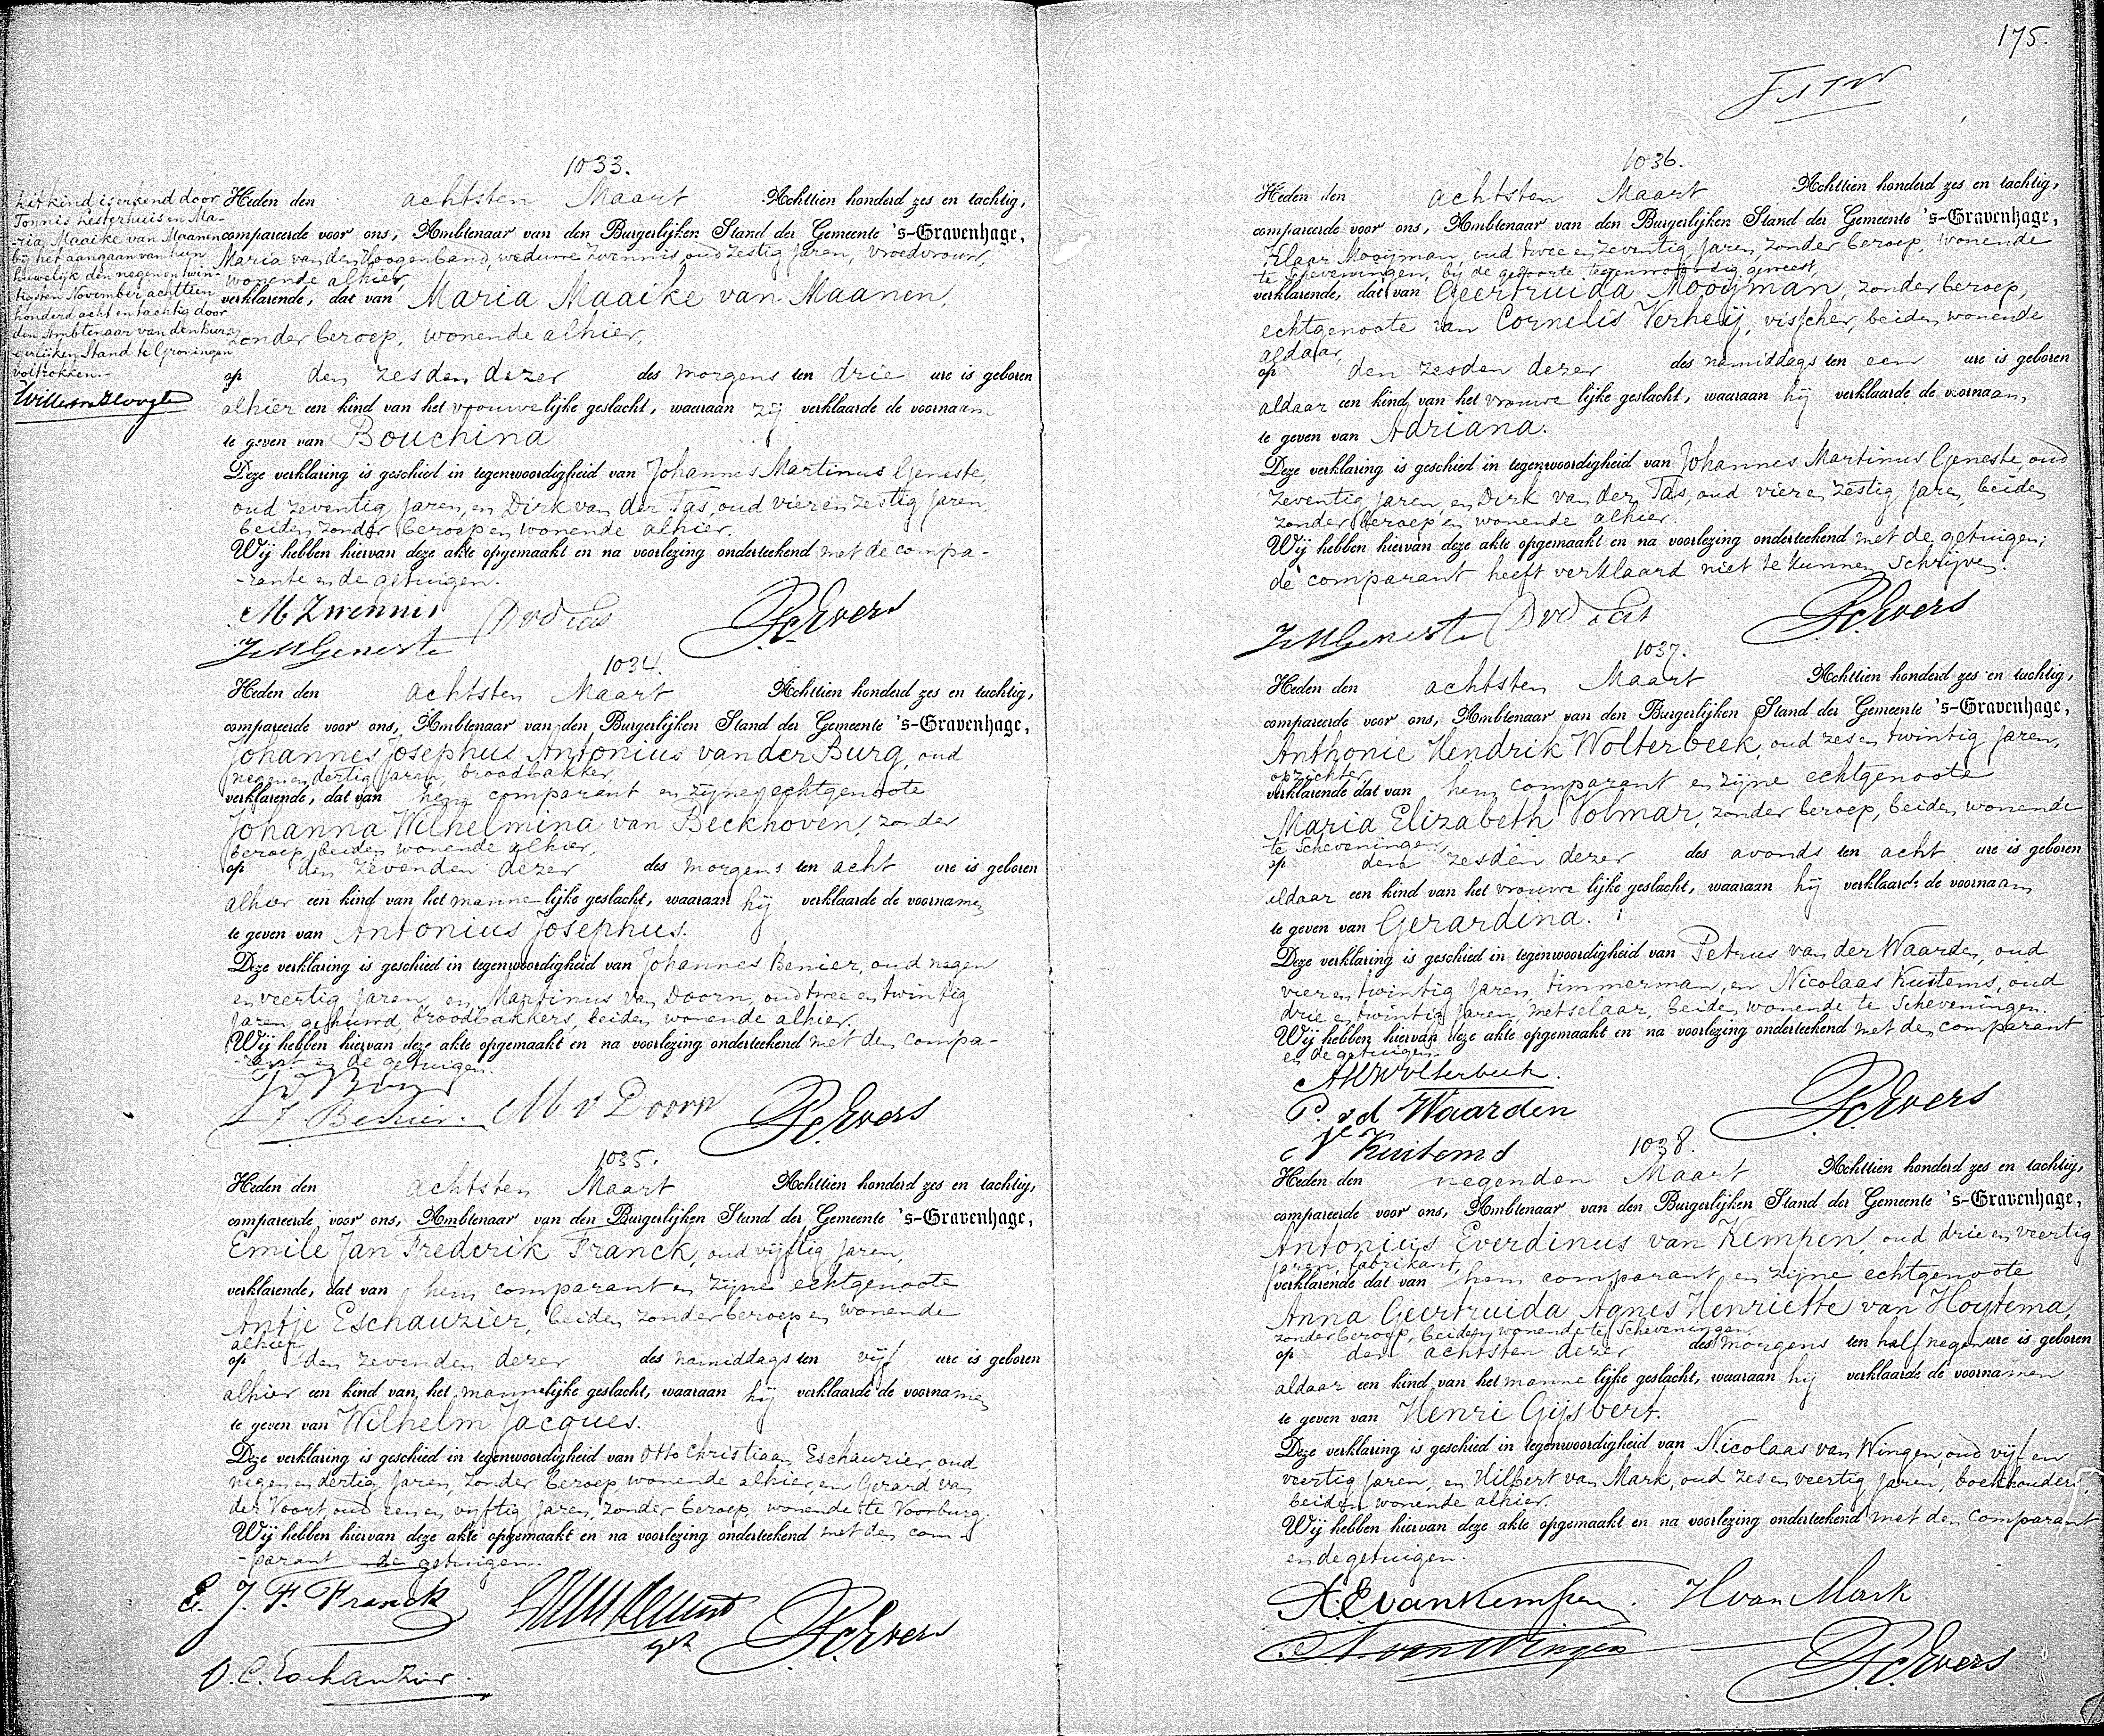 1033.
Dit kind is erkend door
Tonnis Lesterhuis en Ma-
-ria Maaike van Maanen
bij het aangaan van hun
huwelijk den negen en twin-
tigsten November achttien
honderd acht en tachtig door
den Ambtenaar van den Bur-
-gerlijken Stand te Groningen
voltrokken.-
Heden den achtsten Maart Achttien honderd zes en tachtig,
compareerde voor ons, Ambtenaar van den Burgerlijken Stand der Gemeente 's-Gravenhage,
Maria van den Hoogenband, weduwe Zwennis, oud zestig jaren, vroedvrouw,
wonende alhier,
verklarende, dat van Maria Maaike van Maanen,
zonder beroep, wonende alhier,
op den zesden dezer des morgens ten drie ure is geboren
alhier een kind van het vrouwelijke geslacht, waaraan zij verklaarde de voornaam
te geven van Bouchina
Deze verklaring is geschied in tegenwoordigheid van Johannes Martinus Geneste,
oud zeventig jaren, en Dirk van der Tas, oud vier en zestig jaren,
beiden zonder beroep en wonende alhier.
Wij hebben hiervan deze akte opgemaakt en na voorlezing onderteekend met de compa-
-rante en de getuigen.
M Zwennis DvdTas
JMGeneste PcEvers
1034.
Heden den achtsten Maart Achttien honderd zes en tachtig,
compareerde voor ons, Ambtenaar van den Burgerlijken Stand der Gemeente 's-Gravenhage,
Johannes Josephus Antonius van der Burg, oud
negen en dertig jaren, broodbakker,
verklarende, dat van hem comparant en zijne echtgenoote
Johanna Wilhelmina van Beckhoven, zonder
beroep, beiden wonende alhier,
op den zevenden dezer des morgens ten acht ure is geboren
alhier een kind van het mannelijke geslacht, waaraan hij verklaarde de voornamen
te geven van Antonius Josephus.
Deze verklaring is geschied in tegenwoordigheid van Johannes Benier, oud negen
en veertig jaren, en Martinus van Doorn, oud twee en twintig
jaren, gehuwd, broodbakkers, beiden wonende alhier.
Wij hebben hiervan deze akte opgemaakt en na voorlezing onderteekend met den compa-
-rant en de getuigen.
J Benier. M v Doorn PcEvers
1035.
Heden den achtsten Maart Achttien honderd zes en tachtig,
compareerde voor ons, Ambtenaar van den Burgerlijken Stand der Gemeente 's-Gravenhage,
Emile Jan Frederik Franck, oud vijftig jaren,
verklarende, dat van hem comparant en zijne echtgenoote
Antje Eschauzier, beiden zonder beroep en wonende
alhier,
op den zevenden dezer des namiddags ten vijf ure is geboren
alhier een kind van het mannelijke geslacht, waaraan hij verklaarde de voornamen
te geven van Wilhelm Jacques.
Deze verklaring is geschied in tegenwoordigheid van Otto Christiaan Eschauzier, oud
negen en dertig jaren, zonder beroep, wonende alhier, en Gerard van
der Voort, oud een en vijftig jaren, zonder beroep, wonende te Voorburg.
Wij hebben hiervan deze akte opgemaakt en na voorlezing onderteekend met den com-
-parant en de getuigen.
E. J. F. Franck
PcEvers
O. C. Eschauzier.
175.
1036.
Heden den achtsten Maart Achttien honderd zes en tachtig,
compareerde voor ons, Ambtenaar van den Burgerlijken Stand der Gemeente 's-Gravenhage,
Klaar Mooijman, oud twee en zeventig jaren, zonder beroep, wonende
te Scheveningen, bij de geboorte tegenwoordig geweest,
verklarende, dat van Geertruida Mooijman, zonder beroep,
echtgenoote van Cornelis Verheij, visscher, beiden wonende
aldaar,
op den zesden dezer des namiddags ten een ure is geboren
aldaar een kind van het vrouwelijke geslacht, waaraan hij verklaarde de voornaam
te geven van Adriana.
Deze verklaring is geschied in tegenwoordigheid van Johannes Martinus Geneste, oud
zeventig jaren, en Dirk van der Tas, oud vier en zestig jaren, beiden
zonder beroep en wonende alhier.
Wij hebben hiervan deze akte opgemaakt en na voorlezing onderteekend met de getuigen;
de comparant heeft verklaard niet te kunnen schrijven.
JMGeneste DvdTas PcEvers
1037.
Heden den achtsten Maart Achttien honderd zes en tachtig,
compareerde voor ons, Ambtenaar van den Burgerlijken Stand der Gemeente 's-Gravenhage,
Anthonie Hendrik Wolterbeek, oud zes en twintig jaren,
opzichter,
verklarende dat van hem comparant en zijne echtgenoote
Maria Elizabeth Volmar, zonder beroep, beiden wonende
te Scheveningen,
op den zesden dezer des avonds ten acht ure is geboren
aldaar een kind van het vrouwelijke geslacht, waaraan hij verklaarde de voornaam
te geven van Gerardina.
Deze verklaring is geschied in tegenwoordigheid van Petrus van der Waarden, oud
vier en twintig jaren, timmerman, en Nicolaas Kuitems, oud
drie en twintig jaren, metselaar, beiden wonende te Scheveningen.
Wij hebben hiervan deze akte opgemaakt en na voorlezing onderteekend met den comparant
en de getuigen.
AHWolterbeek.
P. vd Waarden PcEvers
N Kuitems
1038.
Heden den negenden Maart Achttien honderd zes en tachtig,
compareerde voor ons, Ambtenaar van den Burgerlijken Stand der Gemeente 's-Gravenhage,
Antonius Everdinus van Kempen, oud drie en veertig
jaren, fabrikant,
verklarende dat van hem comparant en zijne echtgenoote
Anna Geertruida Agnes Henriette van Hoytema,
zonder beroep, beiden wonende te Scheveningen,
op den achtsten dezer des morgens ten half negen ure is geboren
aldaar een kind van het mannelijke geslacht, waaraan hij verklaarde de voornamen
te geven van Henri Gijsbert.
Deze verklaring is geschied in tegenwoordigheid van Nicolaas van Wingen, oud vijf en
veertig jaren, en Hilbert van Mark, oud zes en veertig jaren, boekhouders,
beiden wonende alhier.
Wij hebben hiervan deze akte opgemaakt en na voorlezing onderteekend met den comparant
en de getuigen.
A.E.vanKempen. H van Mark
N. van Wingen PcEvers